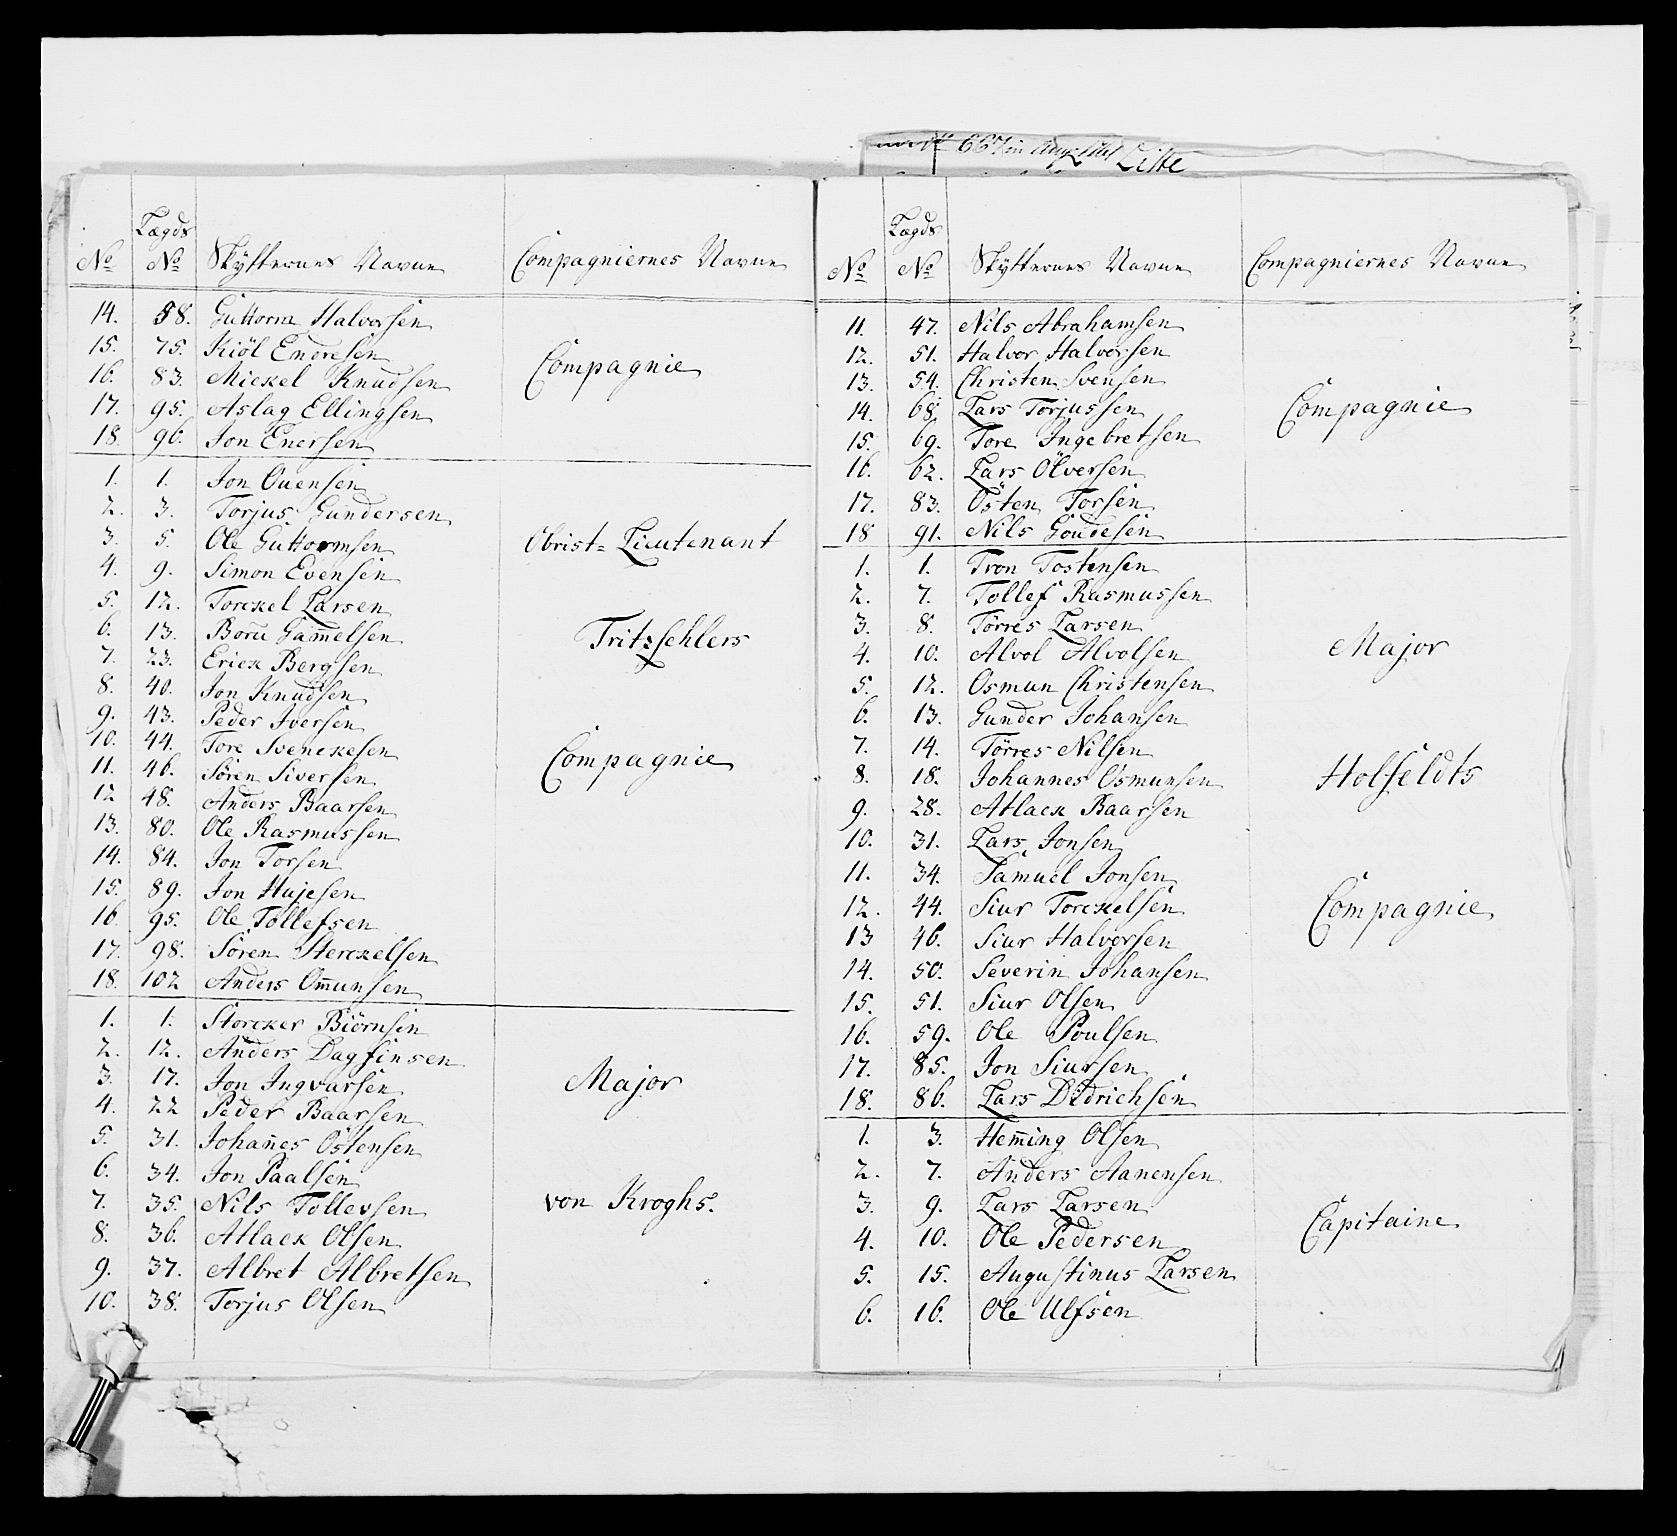 Liste
Lægds
No No Skytternes Navne Compagniernes Navne
14. 58. Guttorm Halvorsen
15. 75. Kiöl Endresen
16. 83. Mickel Knudsen Compagnie
17. 95. Aslag Ellingsen
18. 96. Jon Enersen
1. 1. Jon Ouensen
2. 3. Torjus Gundersen
3. 5. Ole Guttormsen Obrist= Lieutenant
4. 9. Simon Evensen
5. 12. Torckel Larsen
6. 13. Boru Gam̅elsen Tritzschlers
7. 23. Erick Bergsen
8. 40. Jon Knudsen
9. 43. Peder Iversen
10. 44. Tore Svenckesen Compagnie
11. 46. Sören Siversen
12 48. Anders Baarsen
13. 80. Ole Rasmussen
14. 84. Jon Torsen
15. 89. Jon Hujesen
16 95. Ole Tollefsen
17. 98. Sören Sterckelsen
18. 102 Anders Om̅unsen
1. 1. Storcker Biörnsen
2. 12. Anders Dagfinsen
3. 17. Jon Ingvarsen Major
4. 22 Peder Baarsen
5. 31. Johan̅es Östensen
6. 34. Jon Paalsen
7. 35. Nils Tollevsen von Kroghs.
8. 36. Atlack Olsen
9. 37. Albret Albretsen
10. 38. Torjus Olsen
Lægds
No No Skytternes Navne Compagniernes Navne
11. 47. Nils Abrahamsen
12. 51. Halvor Halvorsen
13. 54. Christen Svensen
14. 68. Lars Torjussen Compagnie
15. 69. Tore Ingebretsen
16. 62. Lars Ölversen
17. 83. Östen Torsen
18 91. Nils Goudesen
1. 1. Tron Tostensen
2. 7. Tollef Rasmussen
3. 8. Törres Larsen
4. 10. Alvol Alvolsen Major
5. 12. Osmun Christensen
6. 13. Gunder Johansen
7. 14. Törres Nilsen
8. 18. Johannes Osmunsen Holfeldts
9. 28. Atlack Baarsen
10. 31. Lars Jonsen
11. 34. Samuel Jonsen
12. 44. Siur Torckelsen Compagnie
13 46. Siur Halvorsen
14. 50. Severin Johansen
15. 51. Siur Olsen
16. 59. Ole Poulsen
17. 85. Jon Siursen
18. 86. Lars Didrichsen
1. 3. Hem̅ing Olsen
2. 7. Anders Aanensen
3. 9. Lars Larsen Capitaine
4. 10. Ole Pedersen
5. 15. Augustinus Larsen
6. 16. Ole Ulfsen